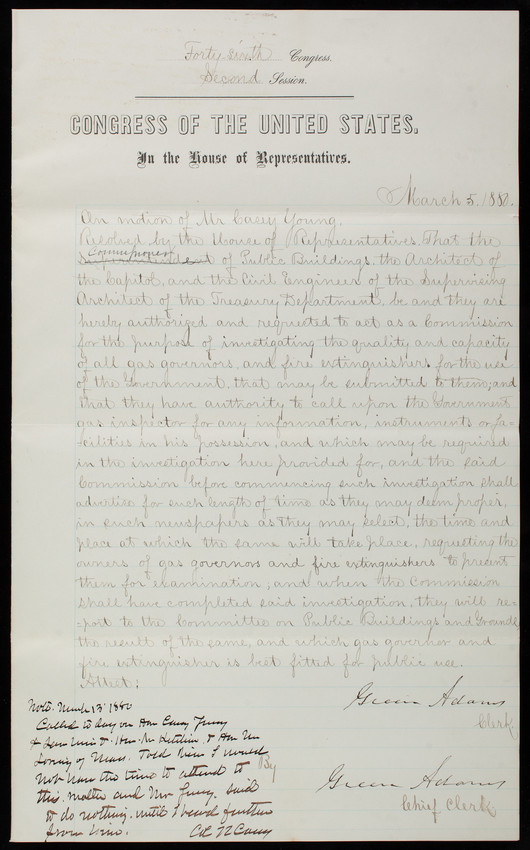 Forty sixth Congress,
Second Session.
CONGRESS OF THE UNITED STATES,
In the House of Representatives.
March 5, 1880.
On motion of Mr Casey Young.
Resolved by the House of Representatives, That the
Commissioner
Superintendent of Public Buildings, the Architect of
the Capitol, and the Civil Engineer of the Supervising
Architect of the Treasury Department, be and they are
hereby authorized and requested to act as a Commission
for the purpose of investigating the quality and capacity
of all gas governors, and fire extinguishers for the use
of the Government, that may be submitted to them; and
that they have authority to call upon the Government
gas inspector for any information, instruments or fa-
cilities in his possession, and which may be required
in the investigation here provided for, and the said
Commission before commencing such investigation shall
advertise for such length of time as they may deem proper,
in such newspapers as they may select, the time and
place at which the same will take place, requesting the
owners of gas governors and fire extinguishers to present
them for examination; and when the Commission
shall have completed said investigation, they will re-
-port to the Committee on Public Buildings and Grounds
the result of the same, and which gas governor and
fire extinguisher is best fitted for public use.
Attest:
Green Adams
Clerk.
By
Green Adams
Chief Clerk
Note. March 13 1880
Called to day on Hon Casey Young
& saw him & Hon. Mr & Hon Mr
Loring of Mass. Told him I would
not have the time to attend to
this matter and Mr Young said
to do nothing until I heard further
from him.
Casey